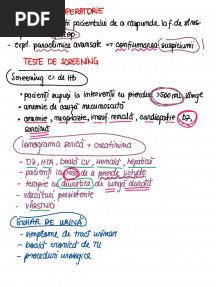 PDF
OPERATORIE
pacientului de a răspunde la f. de stres
- expl. paraclinice avansate → confirmarea suspiciunii!
TESTE DE SCREENING
Screening cu de Hb
• pacienți supuși la intervenții cu pierderi >500 mL sânge
• anemie de cauză necunoscută
• anemie, neoplazie, insuf. renală, cardiopatie, DZ,
sarcină
Ionogramă serică + creatinină
- DZ, HTA, boală CV, renală, hepatică
- pacienți cu risc de a pierde lichide
- terapie cu diuretice de lungă durată
- vărsături persistente
- VÂRSTNICI
SUMAR DE URINĂ
- simptome de tract urinar
- boală cronică de TU
- proceduri urologice